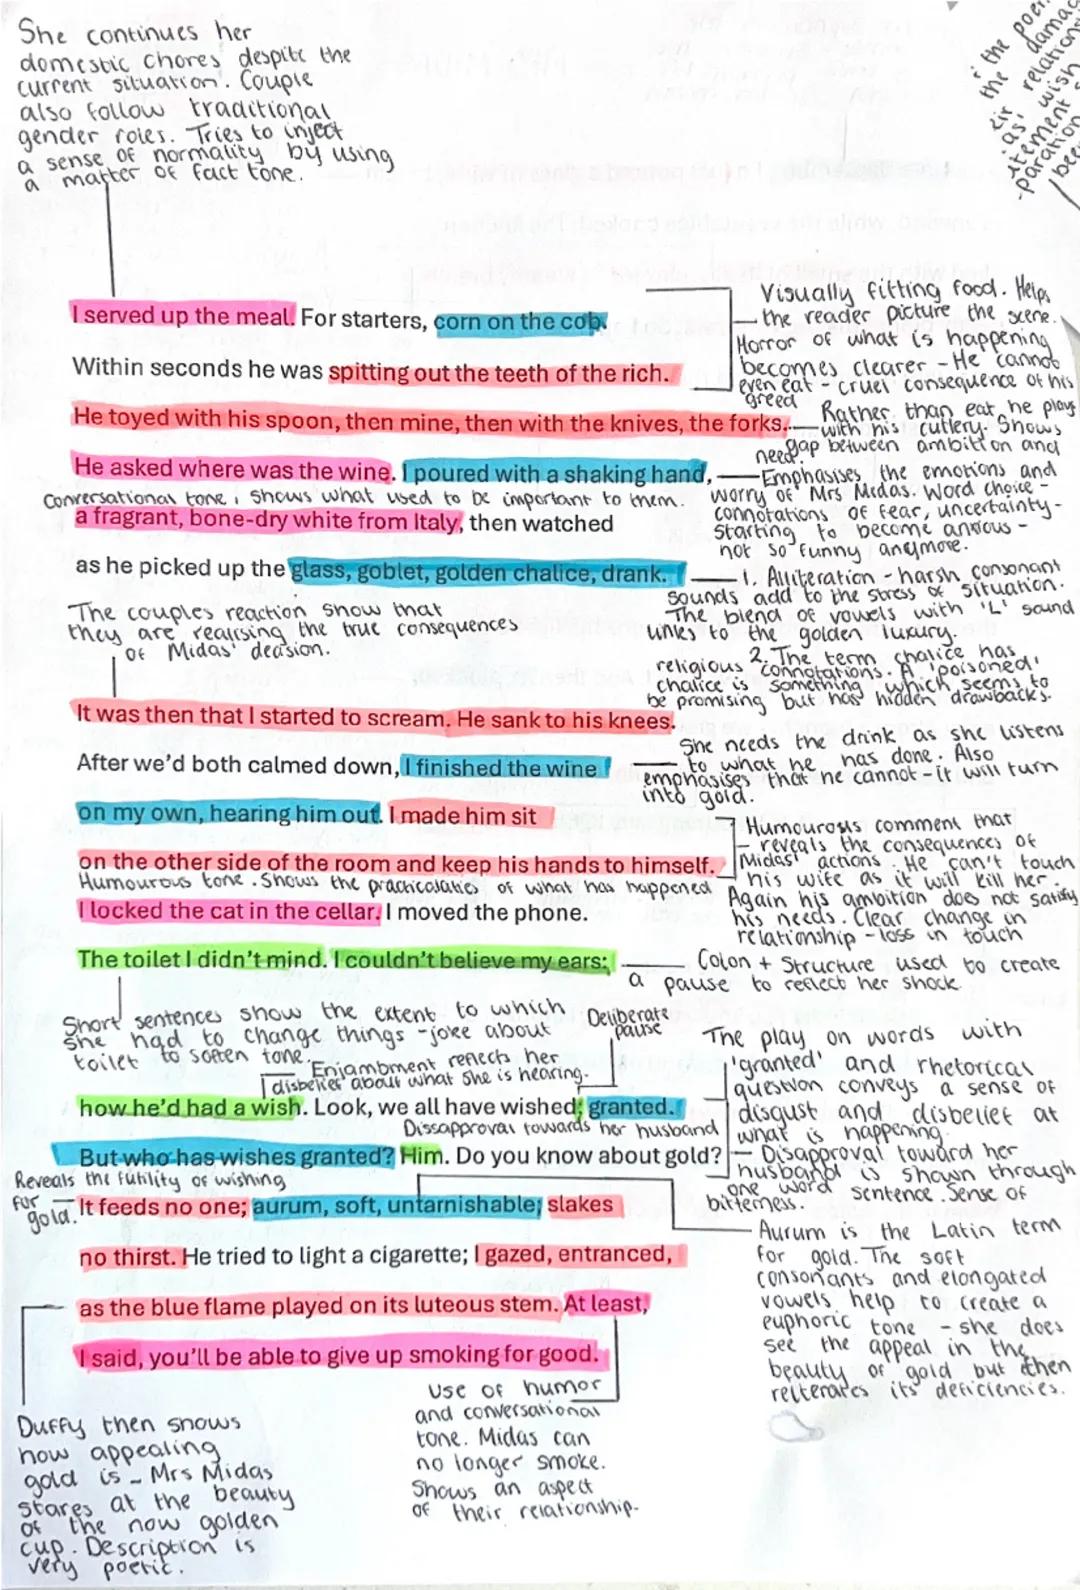 She continues her
domestic chores despite the
current situation. Couple
also follow traditional
gender roles. Tries to inject
a sense of normality by using
a matter of fact tone.
I served up the meal. For starters, corn on the cob.
Within seconds he was spitting out the teeth of the rich.
He toyed with his spoon, then mine, then with the knives, the forks.
He asked where was the wine. I poured with a shaking hand,
Conversational tone, shows what used to be important to them.
a fragrant, bone-dry white from Italy, then watched
as he picked up the glass, goblet, golden chalice, drank.
Visually fitting food. Helps
the reader picture the scene.
Horror of what is happening
becomes clearer - He cannot
even eat - cruel consequence of his
greed
Rather than eat he plays
with his cutlery. Shows
gap between ambition and
need.
Emphasises the emotions and
worry of Mrs Midas. Word choice -
connotations of fear, uncertainty -
starting to become anxious -
not so funny anymore.
1. Alliteration - harsh consonant
sounds add to the stress of situation.
The blend of vowels with 'L' sound
links to the golden luxury.
2. The term chalice has
religious connotations. A 'poisoned'
chalice is something which seems to
be promising but has hidden drawbacks.
The couples reaction show that
they are realising the true consequences
of Midas' decision.
It was then that I started to scream. He sank to his knees.
After we'd both calmed down, I finished the wine
on my own, hearing him out. I made him sit
on the other side of the room and keep his hands to himself.
Humourous tone. Shows the practicalaties of what has happened
I locked the cat in the cellar. I moved the phone.
The toilet I didn't mind. I couldn't believe my ears:
She needs the drink as she listens
to what he has done. Also
emphasises that he cannot - it will turn
into gold.
Humouross comment that
reveals the consequences of
Midas' actions. He can't touch
his wife as it will kill her.
Again his ambition does not satisfy
his needs. Clear change in
relationship - loss in touch
Colon + Structure used to create
a pause to reflect her shock.
Short sentences show the extent to which
she had to change things - joke about
toilet to soften tone.
Deliberate
pause
Enjambment reflects her
disbelief about what she is hearing.
how he'd had a wish. Look, we all have wished; granted.
Dissapproval towards her husband
But who has wishes granted? Him. Do you know about gold?
Reveals the futility of wishing
for
gold.
It feeds no one; aurum, soft, untarnishable; slakes
no thirst. He tried to light a cigarette; I gazed, entranced,
as the blue flame played on its luteous stem. At least,
I said, you'll be able to give up smoking for good.
The play on words with
'granted' and rhetorical
question conveys a sense of
disgust and disbelief at
what is happening.
Disapproval toward her
husband is shown through
one word sentence. Sense of
bitterness.
Aurum is the Latin term
for gold. The soft
consonants and elongated
vowels help to create a
euphoric tone - she does
see the appeal in the
beauty of gold but then
reiterates its deficiencies.
Duffy then shows
how appealing
gold is - Mrs Midas
stares at the beauty
of the now golden
cup. Description is
very poetic.
Use of humor
and conversational
tone. Midas can
no longer smoke.
Shows an aspect
of their relationship.